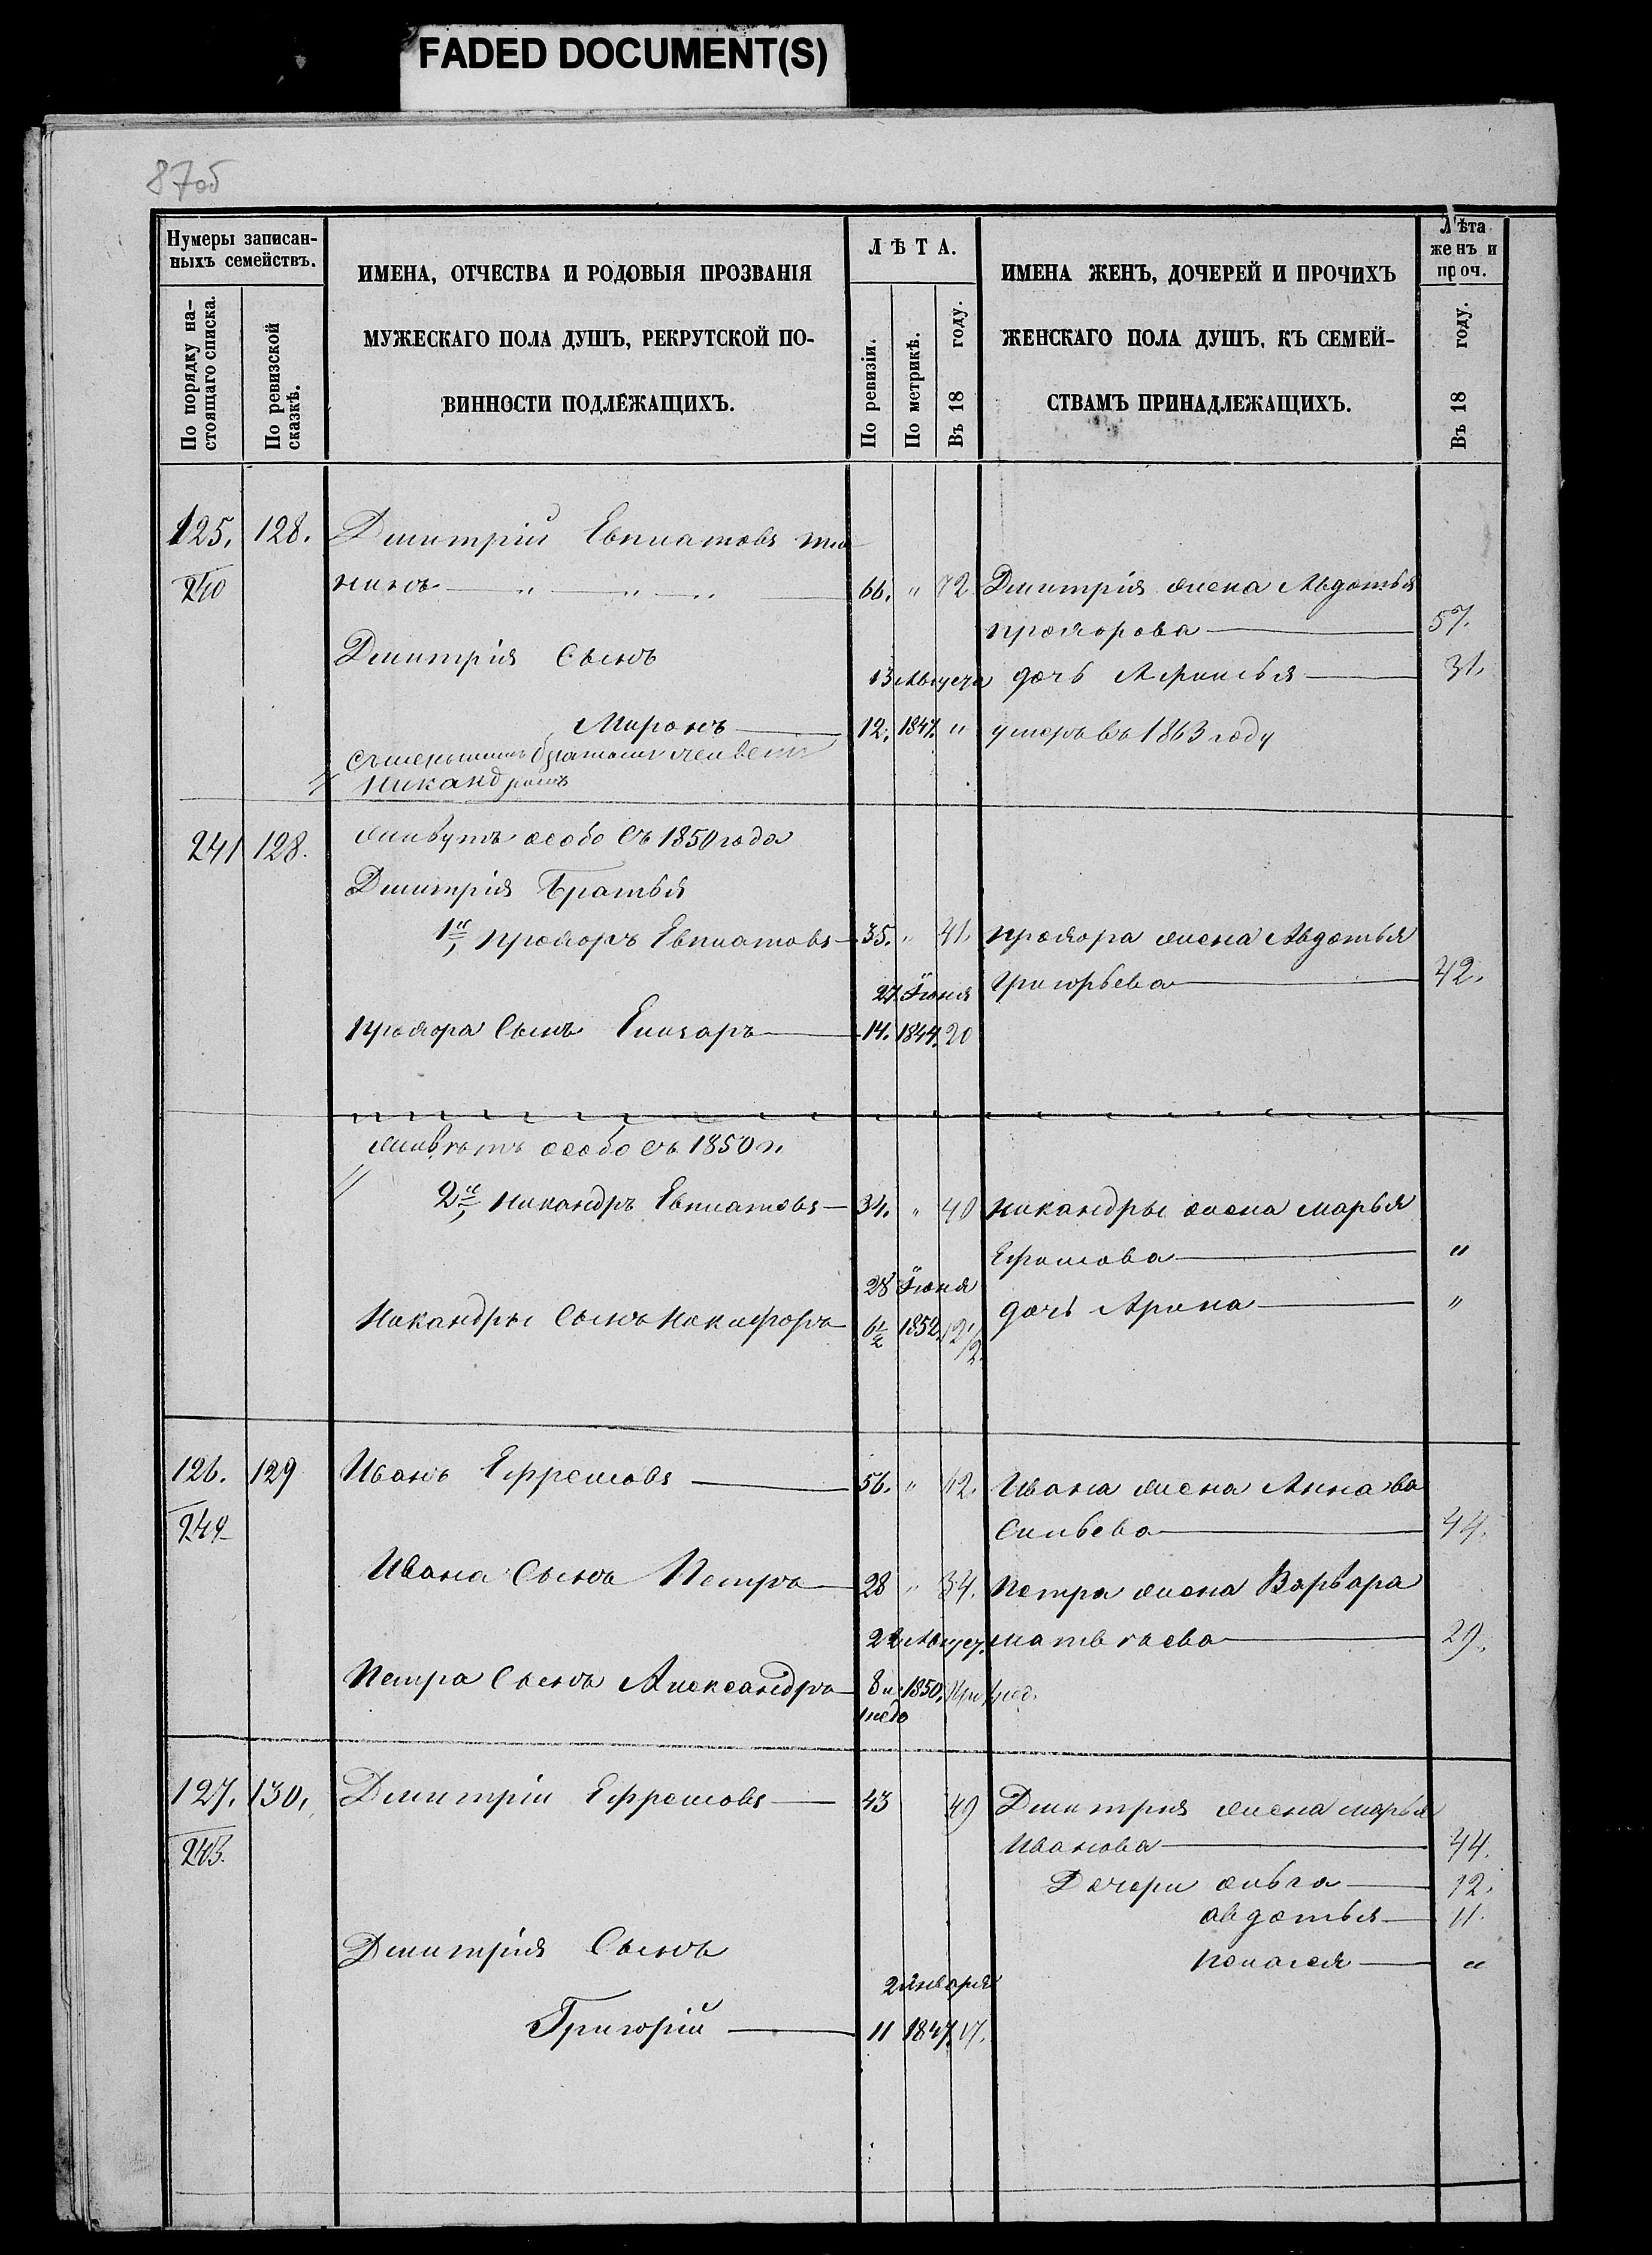 FADED DOCUMENT(S)
87об
Нумеры записан-
ныхъ семействъ.
По порядку на-
стоящаго списка.
По ревизской
сказкѣ.
ИМЕНА, ОТЧЕСТВА И РОДОВЫЯ ПРОЗВАНІЯ
МУЖЕСКАГО ПОЛА ДУШЪ, РЕКРУТСКОЙ ПО-
ВИННОСТИ ПОДЛЕЖАЩИХЪ.
ЛѢТА.
По ревизіи.
По метрикѣ.
Въ 18 году.
ИМЕНА ЖЕНЪ, ДОЧЕРЕЙ И ПРОЧИХЪ
ЖЕНСКАГО ПОЛА ДУШЪ, КЪ СЕМЕЙ-
СТВАМЪ ПРИНАДЛЕЖАЩИХЪ.
Лѣта
женъ и
проч.
Въ 18 году.
125. 128. Дмитрій Евпиатовъ
240 66. " 72 Дмитрія жена Авдотья
Прохорова 57.
Дмитрія Сынъ
13 Августа дочь 31.
Миронъ 12. 1847. " умеръ въ 1863 году
съ меньшимъ братомъ
Никандромъ
241 128. живутъ особо съ 1850 года
Дмитрія Братья
1й, Прохоръ Евпиатовъ 35. " 41. Прохора жена Авдотья
27 Іюня Григорьева 42.
Прохора Сынъ Елизаръ 14. 1844. 20
живутъ особо съ 1850 г.
2й, Никандръ Евпиатовъ 34. " 40 Никандры жена Марья
Ефимова "
28 Іюня
Никандры Сынъ Никифоръ 6½ 1852. 12½. дочь Арина "
126. 129 Иванъ Ефремовъ 56. " 62. Ивана жена Анна Ва
242 сильева 44.
Ивана Сынъ Петръ 28 " 34. Петра жена Варвара
22 Август. Матвѣева 29.
Петра Сынъ Александръ 8 1850.
127. 130. Дмитрій Ефремовъ 43 49 Дмитрия жена Марья
243. Иванова 44.
Дочери 12.
Авдотья 11.
Дмитрія Сынъ Пелагея "
2 Января
Григорій 11 1847. 17.